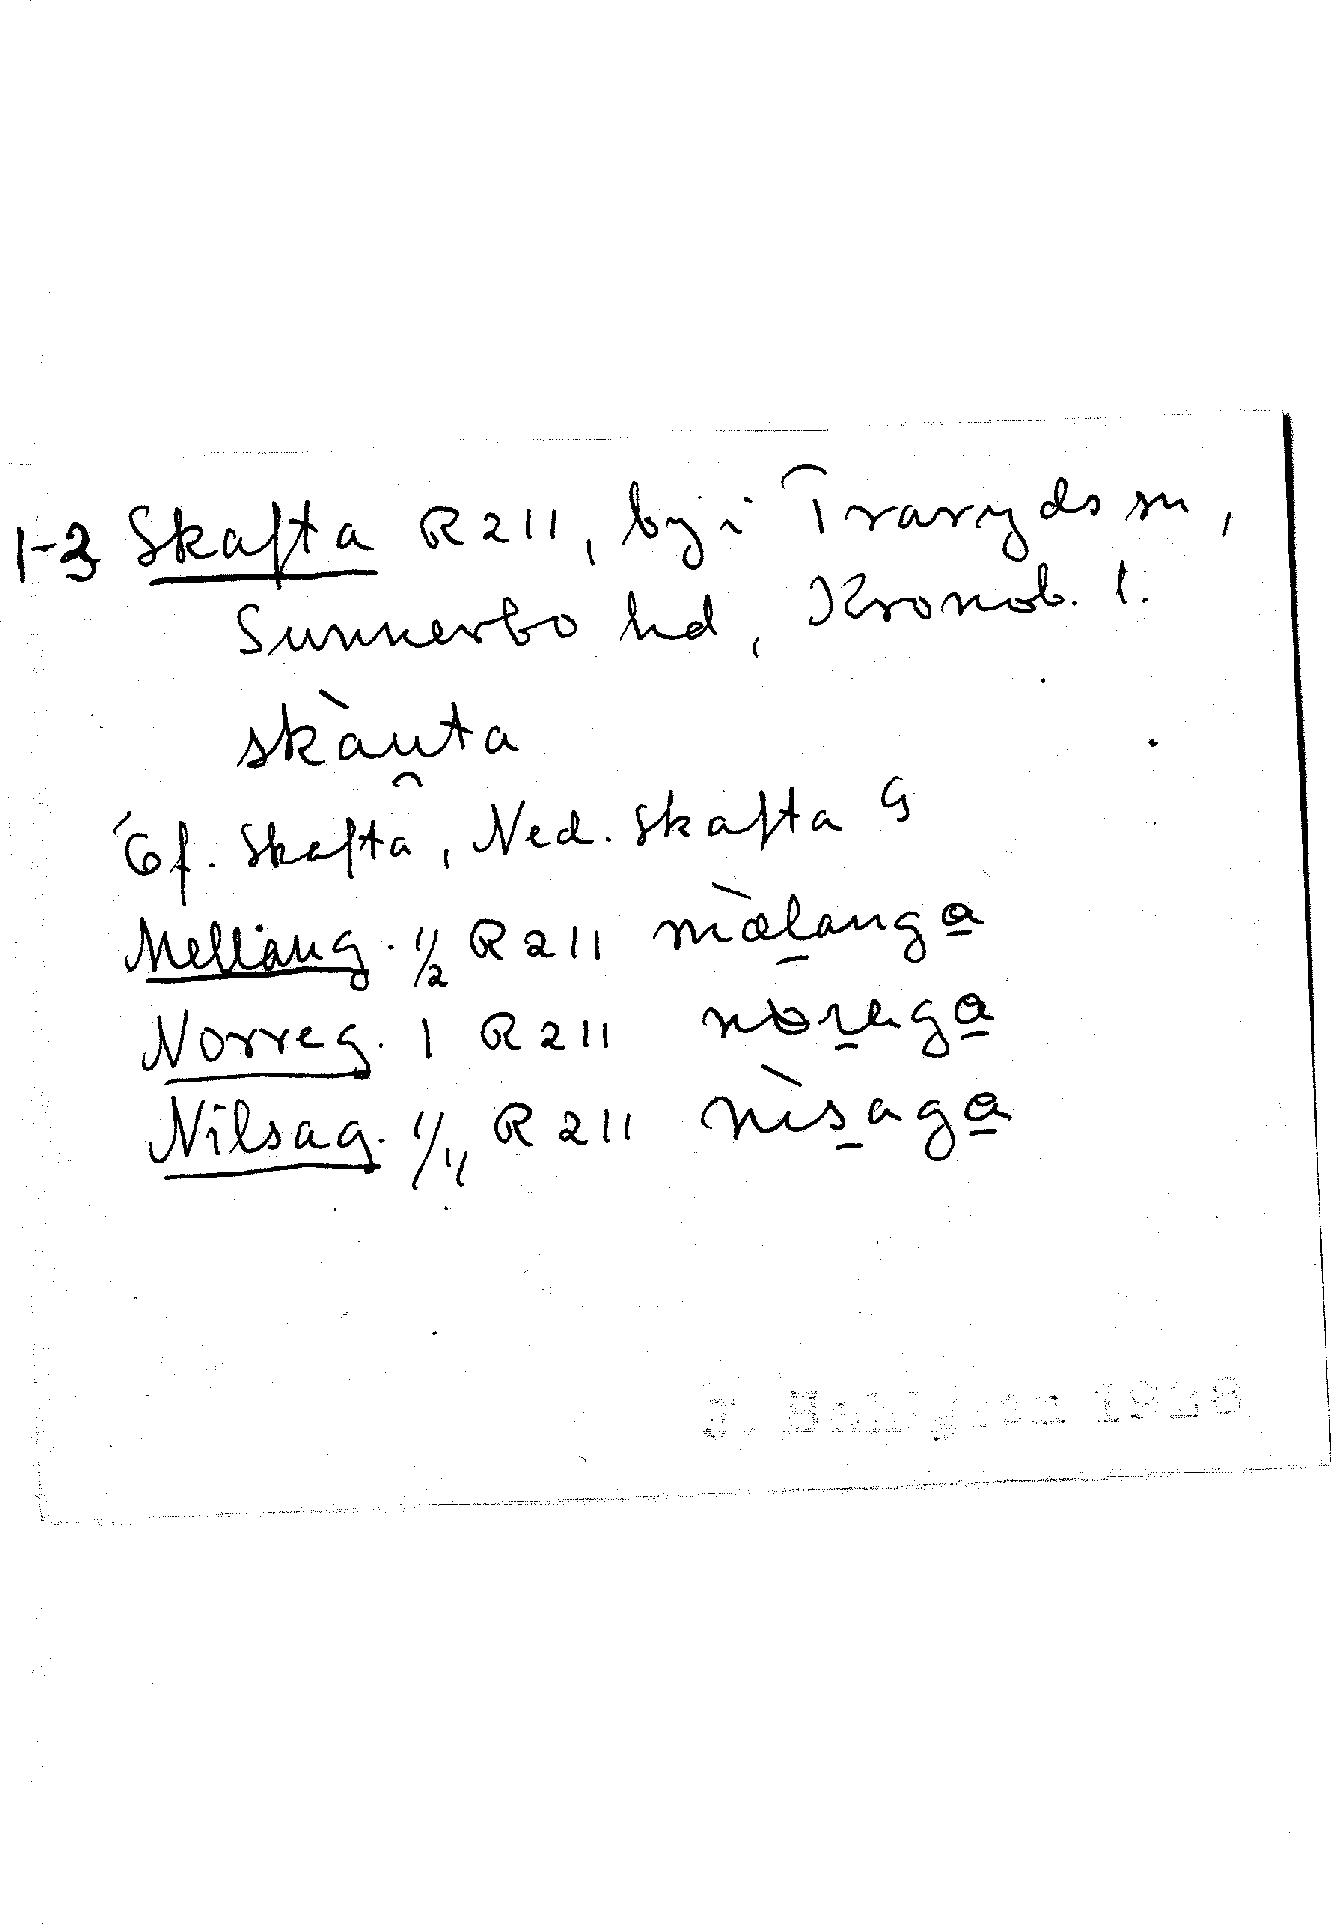 1-3 Skafta R 211, by i Traryds sn,
Sunnerbo hd, Kronob. l.
skàu̯ta
Öf. Skafta, Ned. Skafta G
Melläng. 1/2 R 211 mæ̀langa
Norreg. 1 R 211 norega
Nilsag. 1/4 R 211 nìsaga
1928